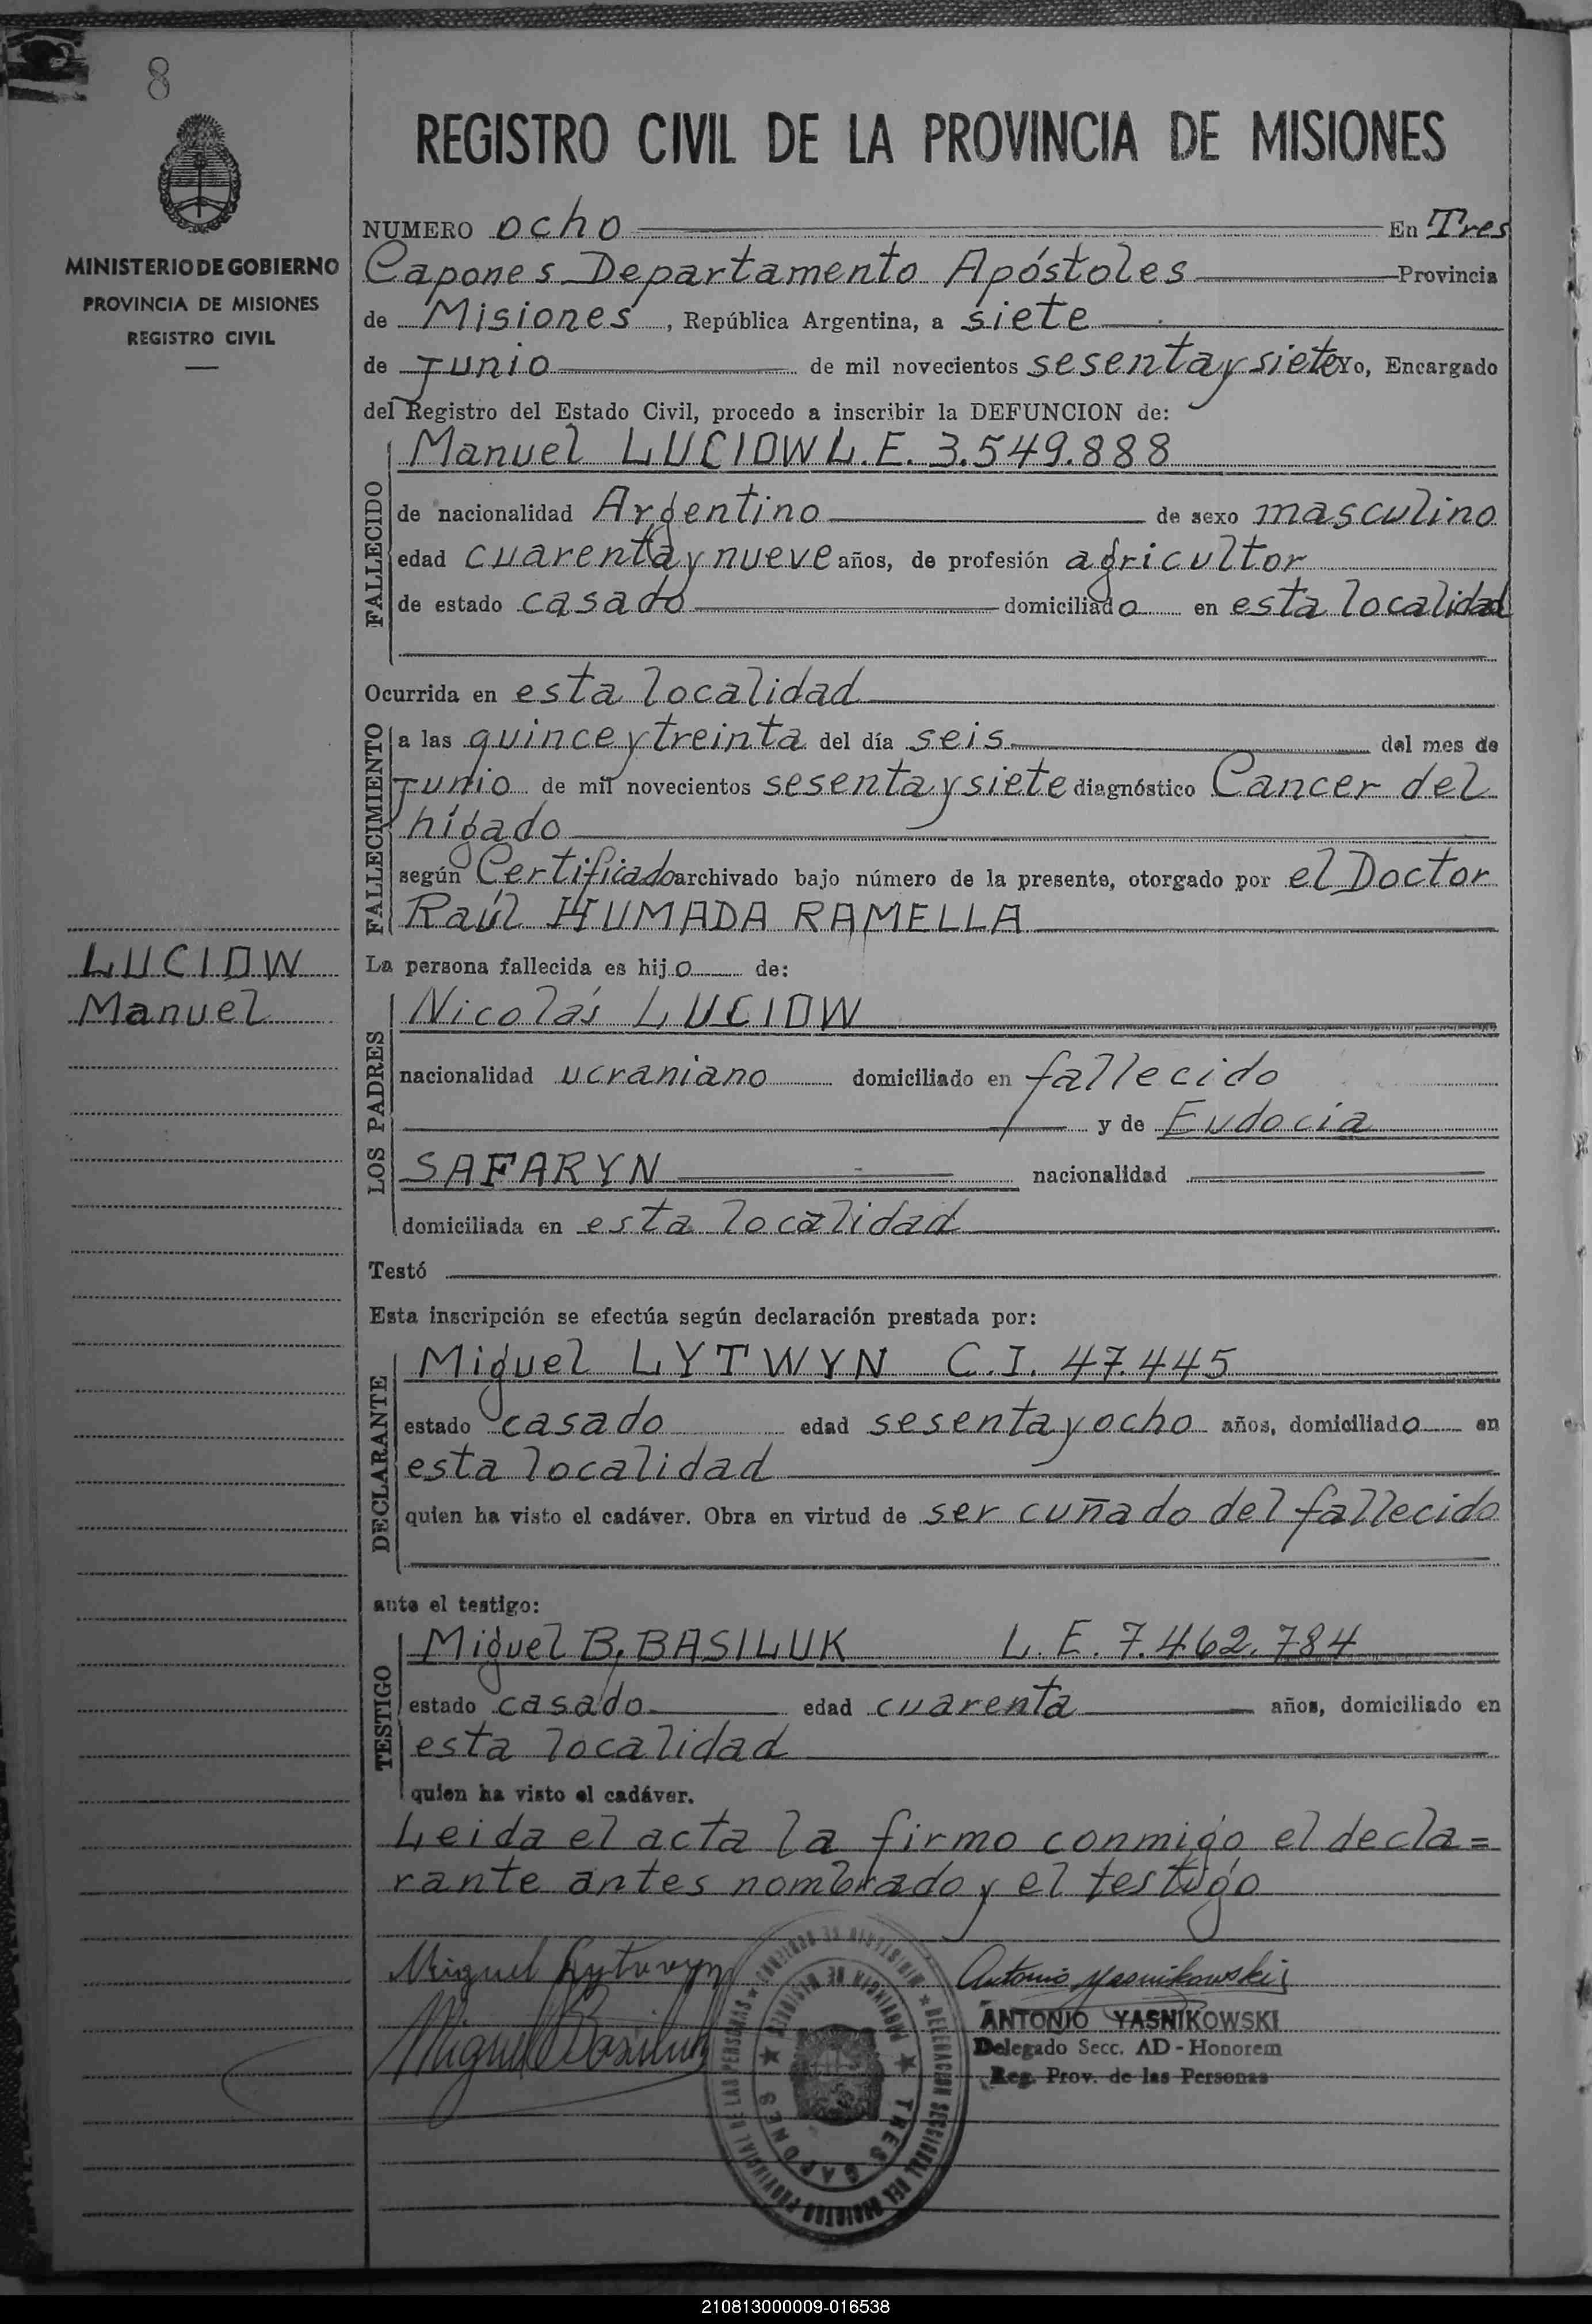 8
MINISTERIO DE GOBIERNO
PROVINCIA DE MISIONES
REGISTRO CIVIL
LUCIOW
Manuel
REGISTRO CIVIL DE LA PROVINCIA DE MISIONES
NUMERO ocho En Tres
Capones Departamento Apóstoles Provincia
de Misiones, República Argentina, a siete
de Junio de mil novecientos sesenta y siete Yo, Encargado
del Registro del Estado Civil, procedo a inscribir la DEFUNCION de:
FALLECIDO
Manuel LUCIOW L.E. 3.549.888
de nacionalidad Argentino de sexo masculino
edad cuarenta y nueve años, de profesión agricultor
de estado casado domiciliado en esta localidad
Ocurrida en esta localidad
FALLECIMIENTO
a las quince y treinta del día seis del mes de
Junio de mil novecientos sesenta y siete diagnóstico Cancer del
hígado
según Certificado archivado bajo número de la presente, otorgado por el Doctor
Raúl HUMADA RAMELLA
La persona fallecida es hijo de:
LOS PADRES
Nicolás LUCIOW
nacionalidad ucraniano domiciliado en fallecido
y de Eudocia
SAFARYN nacionalidad
domiciliada en esta localidad
Testó
Esta inscripción se efectúa según declaración prestada por:
DECLARANTE
Miguel LYTWYN C.I. 47.445
estado casado edad sesenta y ocho años, domiciliado en
esta localidad
quien ha visto el cadáver. Obra en virtud de ser cuñado del fallecido
ante el testigo:
TESTIGO
Miguel B. BASILUK L.E. 7.462.784
estado casado edad cuarenta años, domiciliado en
esta localidad
quien ha visto el cadáver.
Leida el acta la firmo conmigo el decla=
rante antes nombrado y el testigo
Miguel Lytwyn
Antonio Yasnikowski
Miguel Basiluk
ANTONIO YASNIKOWSKI
Delegado Secc. AD-Honorem
Reg. Prov. de las Personas
MINISTERIO DE GOBIERNO ★ DELEGACION SECCIONAL DEL REGISTRO PROVINCIAL DE LAS PERSONAS ★
PROVINCIA DE MISIONES ★ TRES CAPONES ★
210813000009-016538